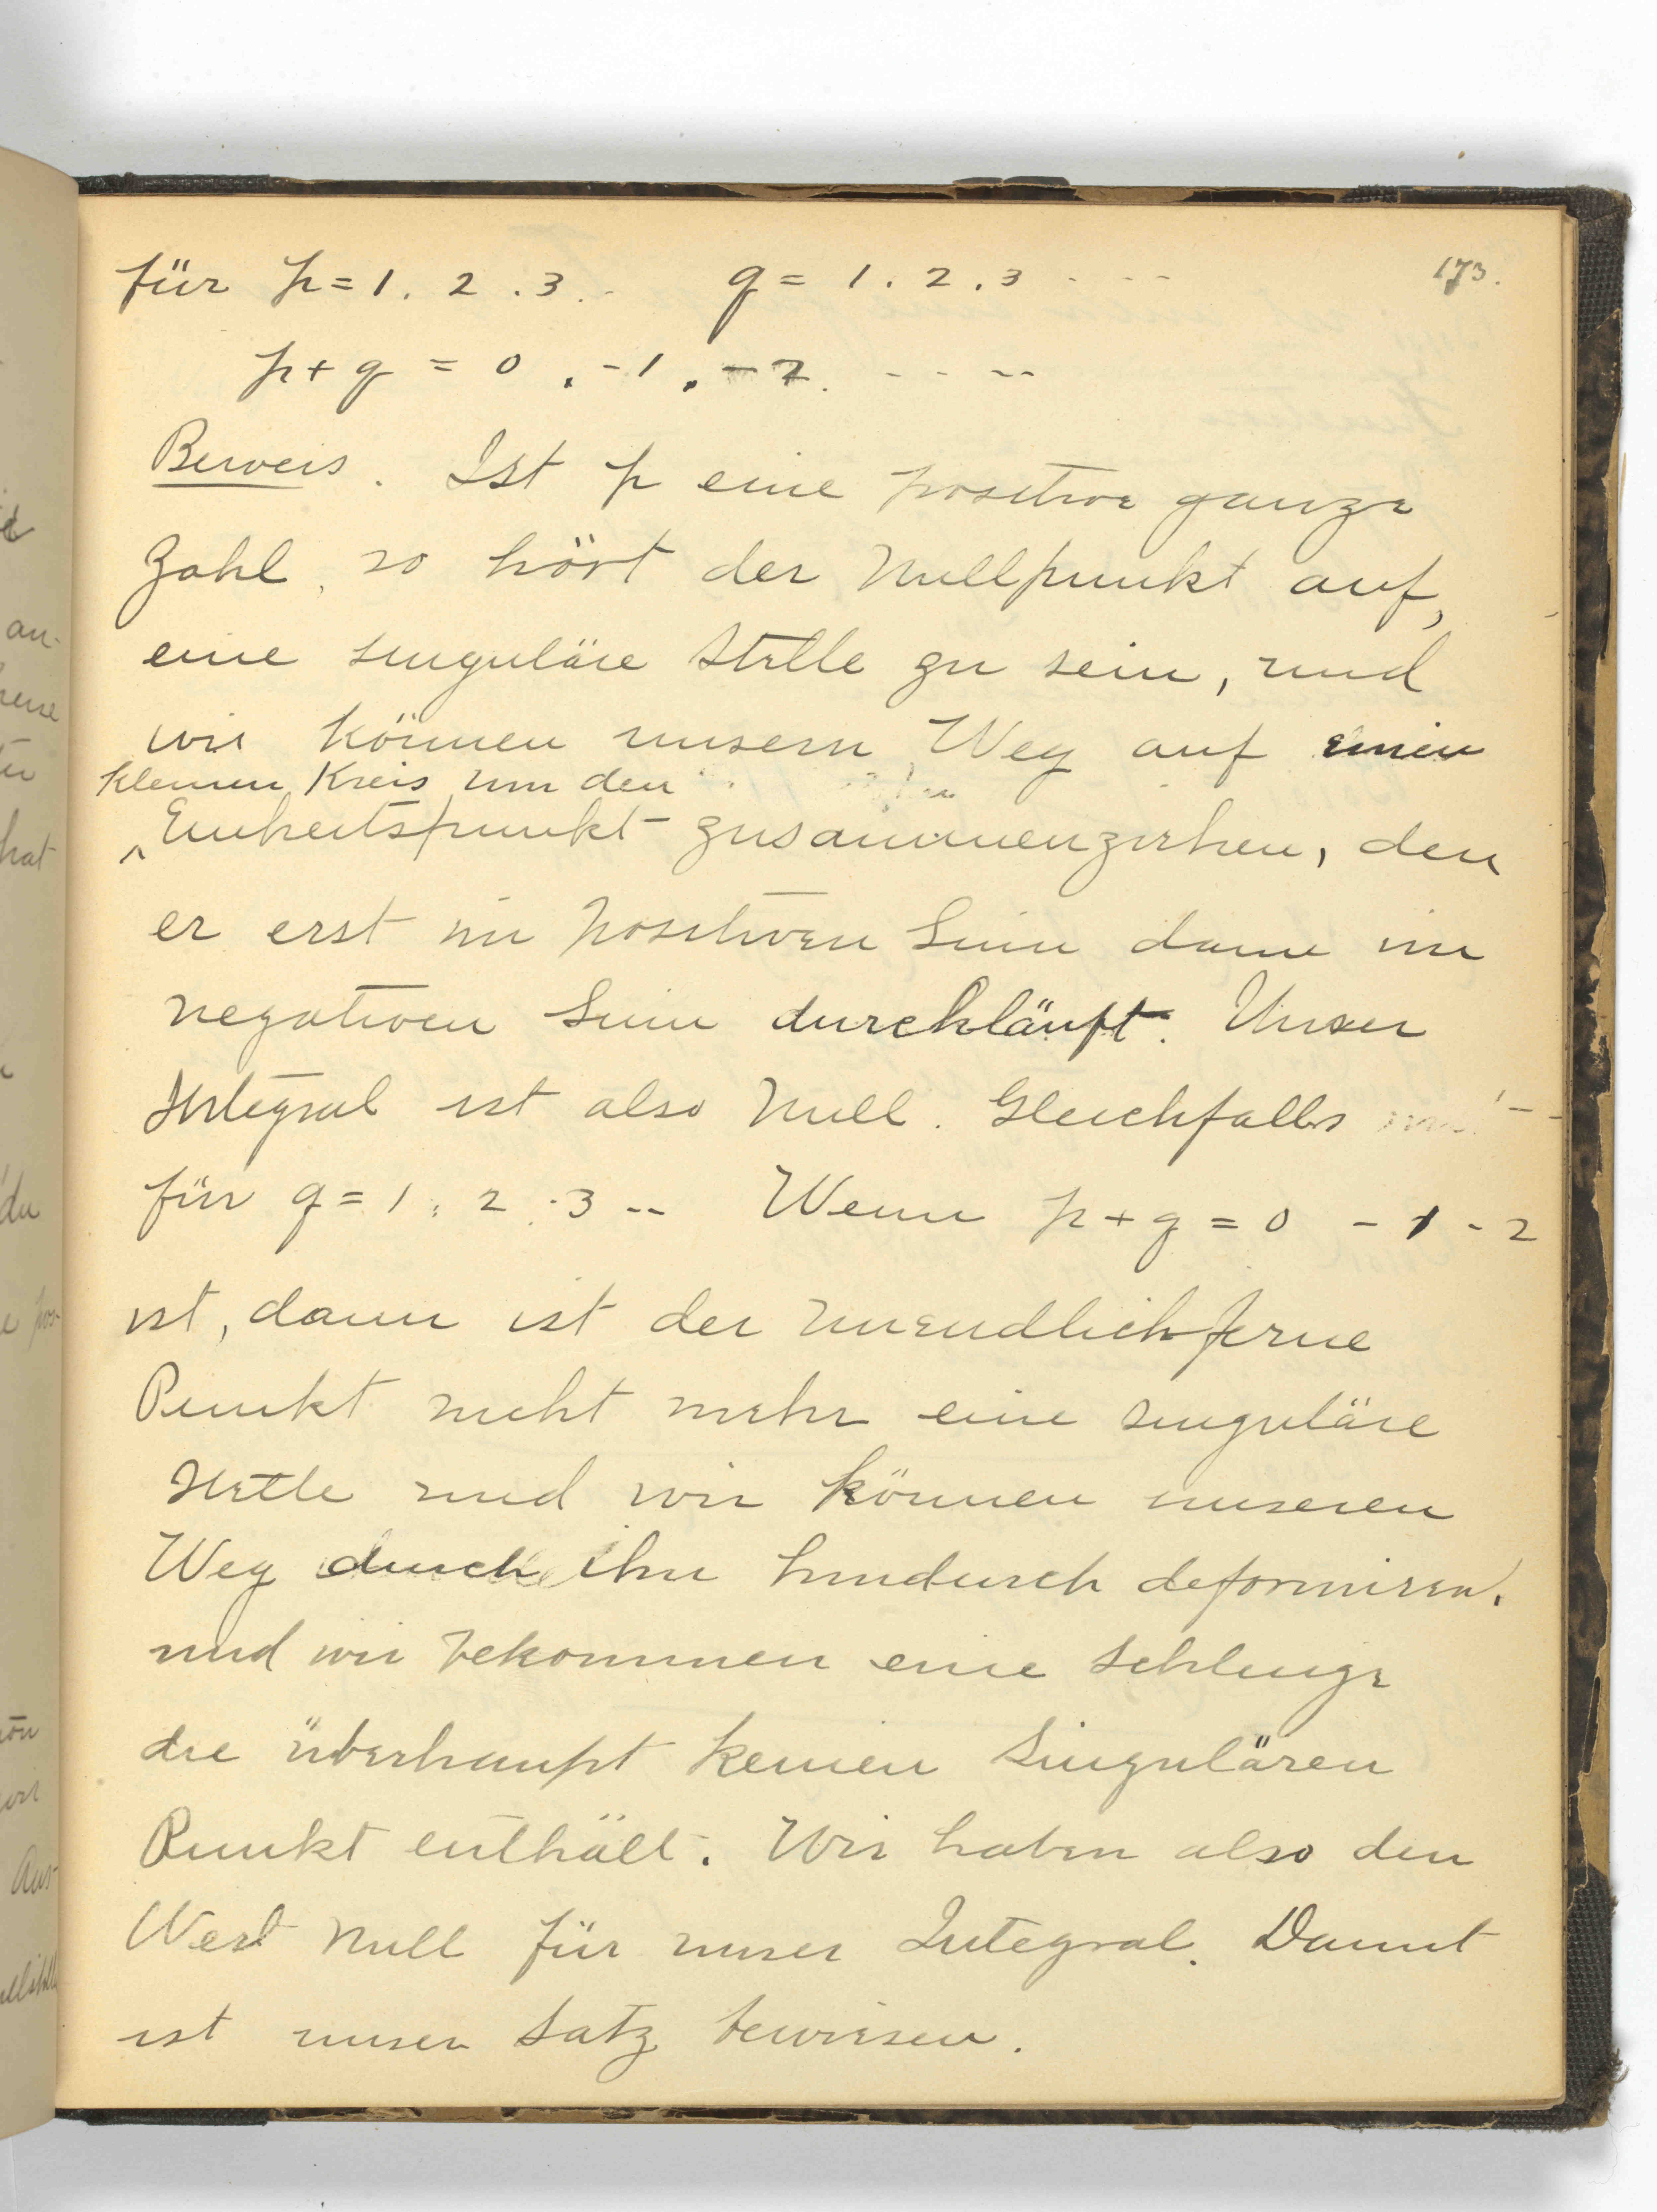 für p = 1. 2. 3. . q = 1. 2. 3 - - -
173.
p + q = 0, -1, -2. - - - -
Beweis. Ist p eine positive ganze
Zahl, so hört der Nullpunkt auf,
eine singuläre Stelle zu sein, und
wir können unsern Weg auf einen
kleinen Kreis um den
Einheitspunkt zusammenziehen, den
er erst im positiven Sinn dann im
negativen Sinn durchläuft. Unser
Integral ist also Null. Gleichfalls
für q = 1, 2. 3 -- Wenn p + q = 0 - 1 - 2
ist, dann ist der unendlich ferne
Punkt nicht mehr eine singuläre
Stelle und wir können unseren
Weg durch ihn hindurch deformiren.
und wir bekommen eine Schlinge
die überhaupt keinen Singulären
Punkt enthält. Wir haben also den
Wert Null für unser Integral. Damit
ist unser Satz bewiesen.